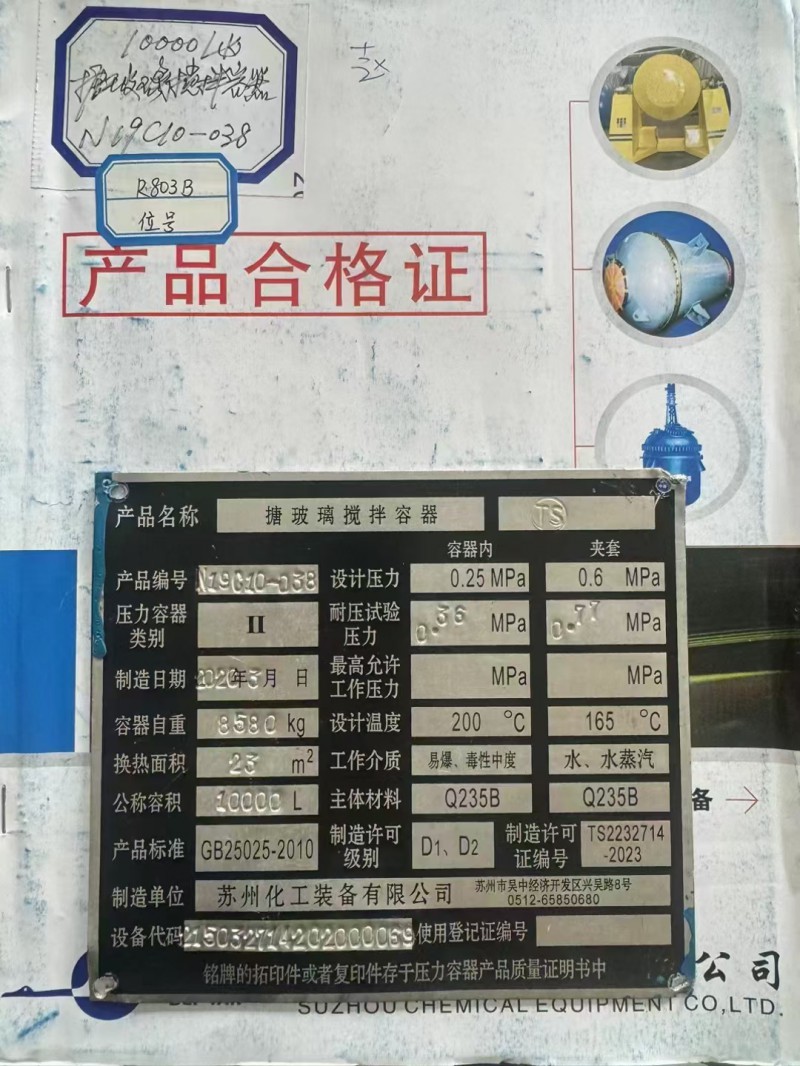 10000L
搪玻璃搅拌容器
N19C10-038
R803B
位号
产品合格证
产品名称 搪玻璃搅拌容器 TS
容器内 夹套
产品编号 N19C10-038 设计压力 0.25 MPa 0.6 MPa
压力容器类别 II 耐压试验压力 0.36 MPa 0.77 MPa
制造日期 2020年3月 日 最高允许工作压力 MPa MPa
容器自重 8580 kg 设计温度 200 ℃ 165 ℃
换热面积 23 m² 工作介质 易爆、毒性中度 水、水蒸汽
公称容积 10000 L 主体材料 Q235B Q235B
产品标准 GB25025-2010 制造许可级别 D1、D2 制造许可证编号 TS2232714-2023
制造单位 苏州化工装备有限公司 苏州市吴中经济开发区兴吴路8号 0512-65850680
设备代码 215032714202000069 使用登记证编号
铭牌的拓印件或者复印件存于压力容器产品质量证明书中
备
公司
SUZHOU CHEMICAL EQUIPMENT CO,LTD.